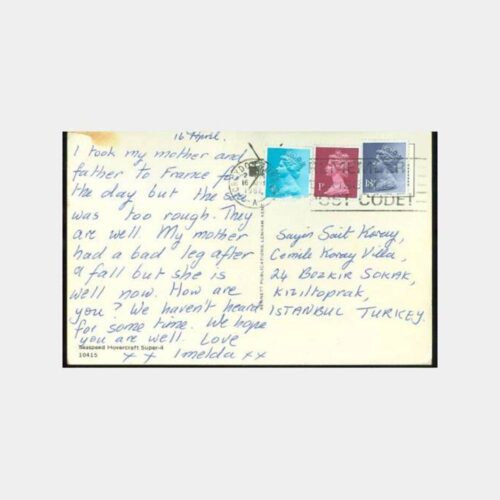 16 April.
I took my mother and
father to France for
the day but the sea
was too rough. They
are well. My mother
had a bad leg after
a fall but she is
well now. How are
you? We haven't heard
for some time. We hope
you are well. Love
x x Imelda x x
Seaspeed Hovercraft Super-4
10415
CROYDON
16
A
REMEMBER
POST CODE!
1P
Sayin Sait Koray,
Cemile Koray Villa,
24 BOZKIR SOKAK,
Kiziltoprak,
ISTANBUL TURKEY.